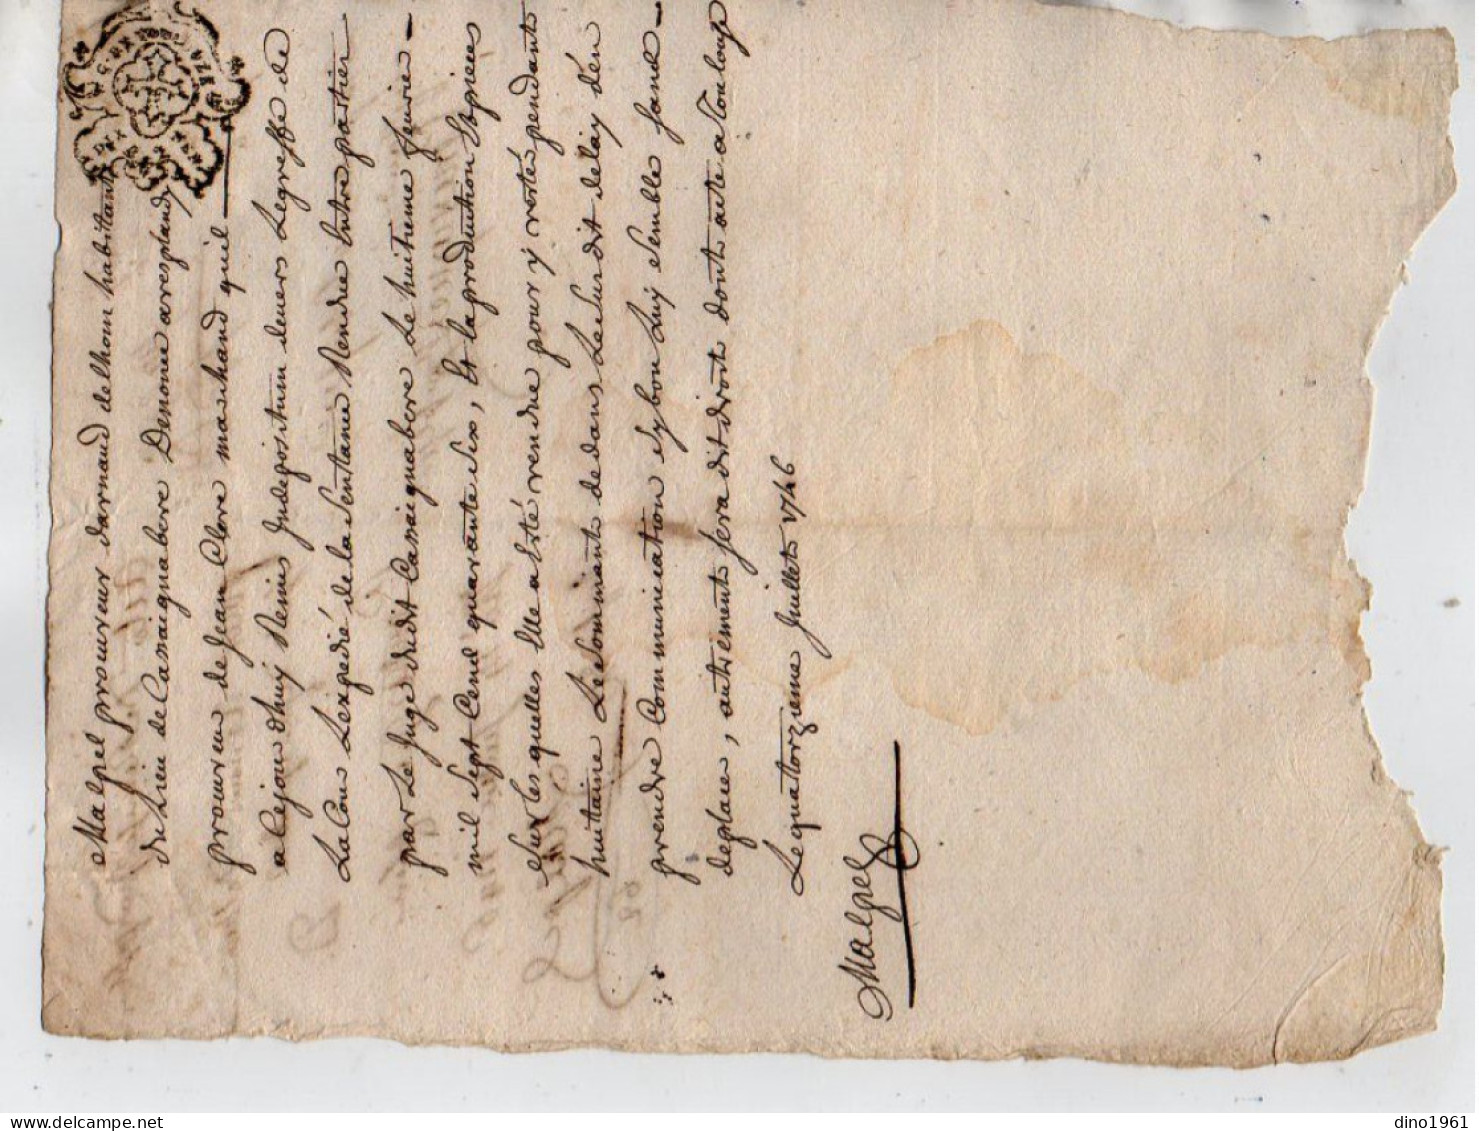 Malpel proureur darnaud delhom habittant
du Lieu de Cassaignabere Denonce a resplandy
proureur de Jean Clore marchand quil
a Cejourdhuy Remis Judepositum devers Legreffe de
La Cour Lexpedié de la Senttance Rendue Entre partier
par Le Juge dudit Cassaignabere Le huitieme feurier
mil Sept Cend quarante Six, Et la produttion Ez pieces
Sur les quelles Elle a Esté rendue pour y resté pendant
huitaine Le Sommant de dans Le Sus dit delay d'en
prendre Communication Sy bon Luy Semble sans
deplacer, autrement Sera dit droit dont acte a Toulouse
Le quattorzieme Juillet 1746
Malpel
dino1961